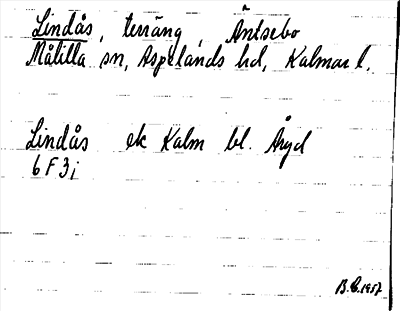 Lindås, terräng, Äntsebo
Målilla sn, Aspelands hd, Kalmar l.
Lindås ek Kalm bl. Åryd
6F3i
B.E.1957